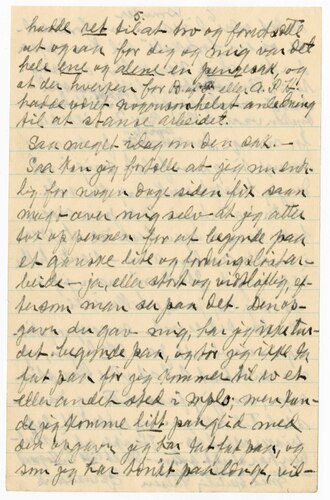 5.
hadde ret til at tro og forutsætte
at ogsaa for dig og mig var det
hele ene og alene en pengesak, og
at der hverken for eller
hadde været nogensomhelst anledning
til at stanse arbeidet.
Saa meget idag om den sak. —
Saa kan jeg fortælle at jeg nu ende-
lig for nogen dage siden fik saan
magt over mig selv at jeg atter
tok op pennen for at begynde paa
et ganske lite og forarbeide
beide — ja, eller stort og vidtløftig, ef-
tersom man ser paa det. Den op-
gave du gav mig, har jeg ikke tur-
det begynde paa, og tør jeg ikke ta
fat paa før jeg kommer til ro et
eller andet sted i men kun-
de jeg komme litt paa glid med
den opgave jeg har tat fat paa, og
som jeg har tænkt paa længe, vil-